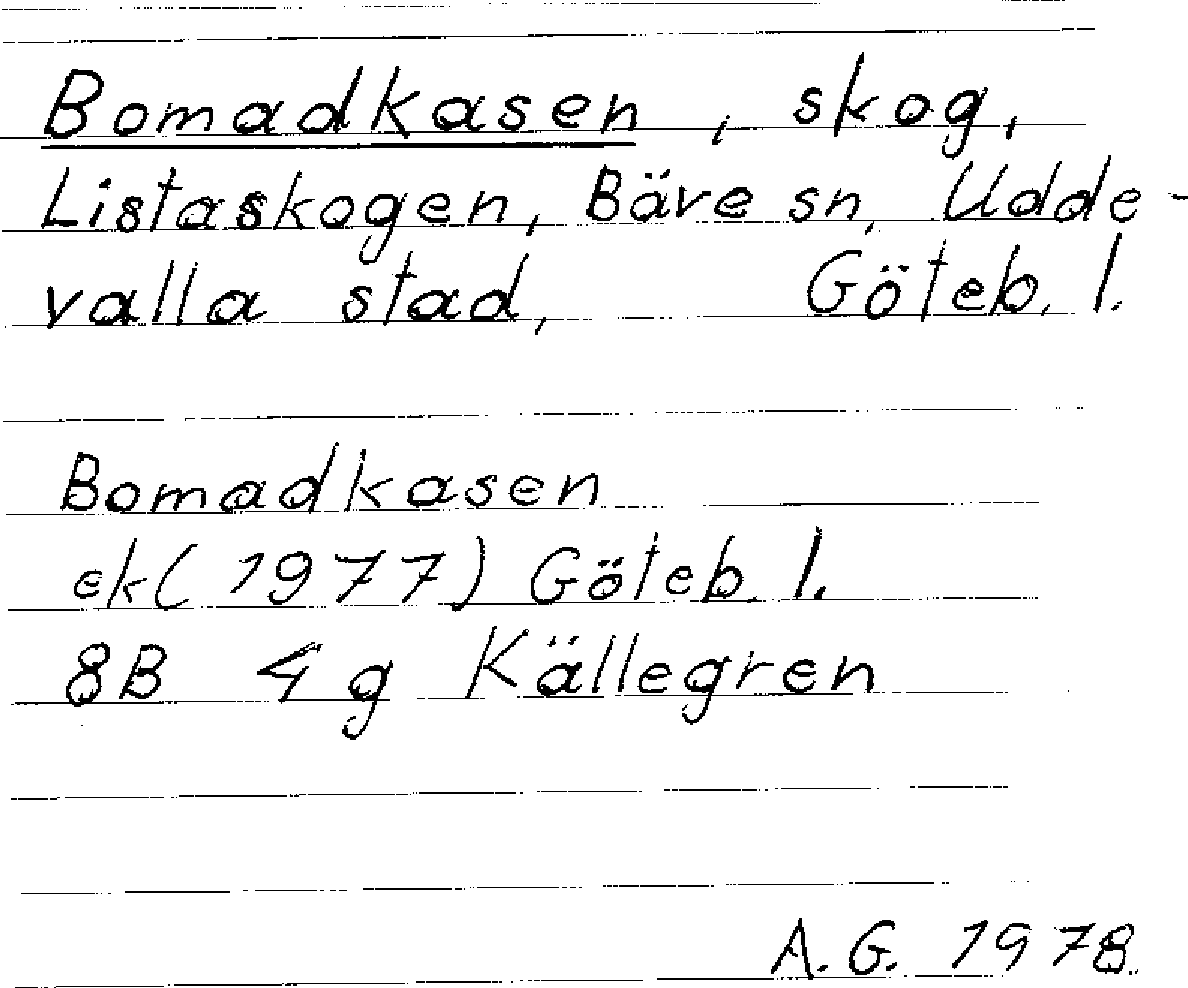 Bomadkasen, skog,
Listaskogen, Bäve sn, Udde-
valla stad, Göteb. l.
Bomadkasen
ek (1977) Göteb. l.
8B 4g Källegren
A. G. 1978.